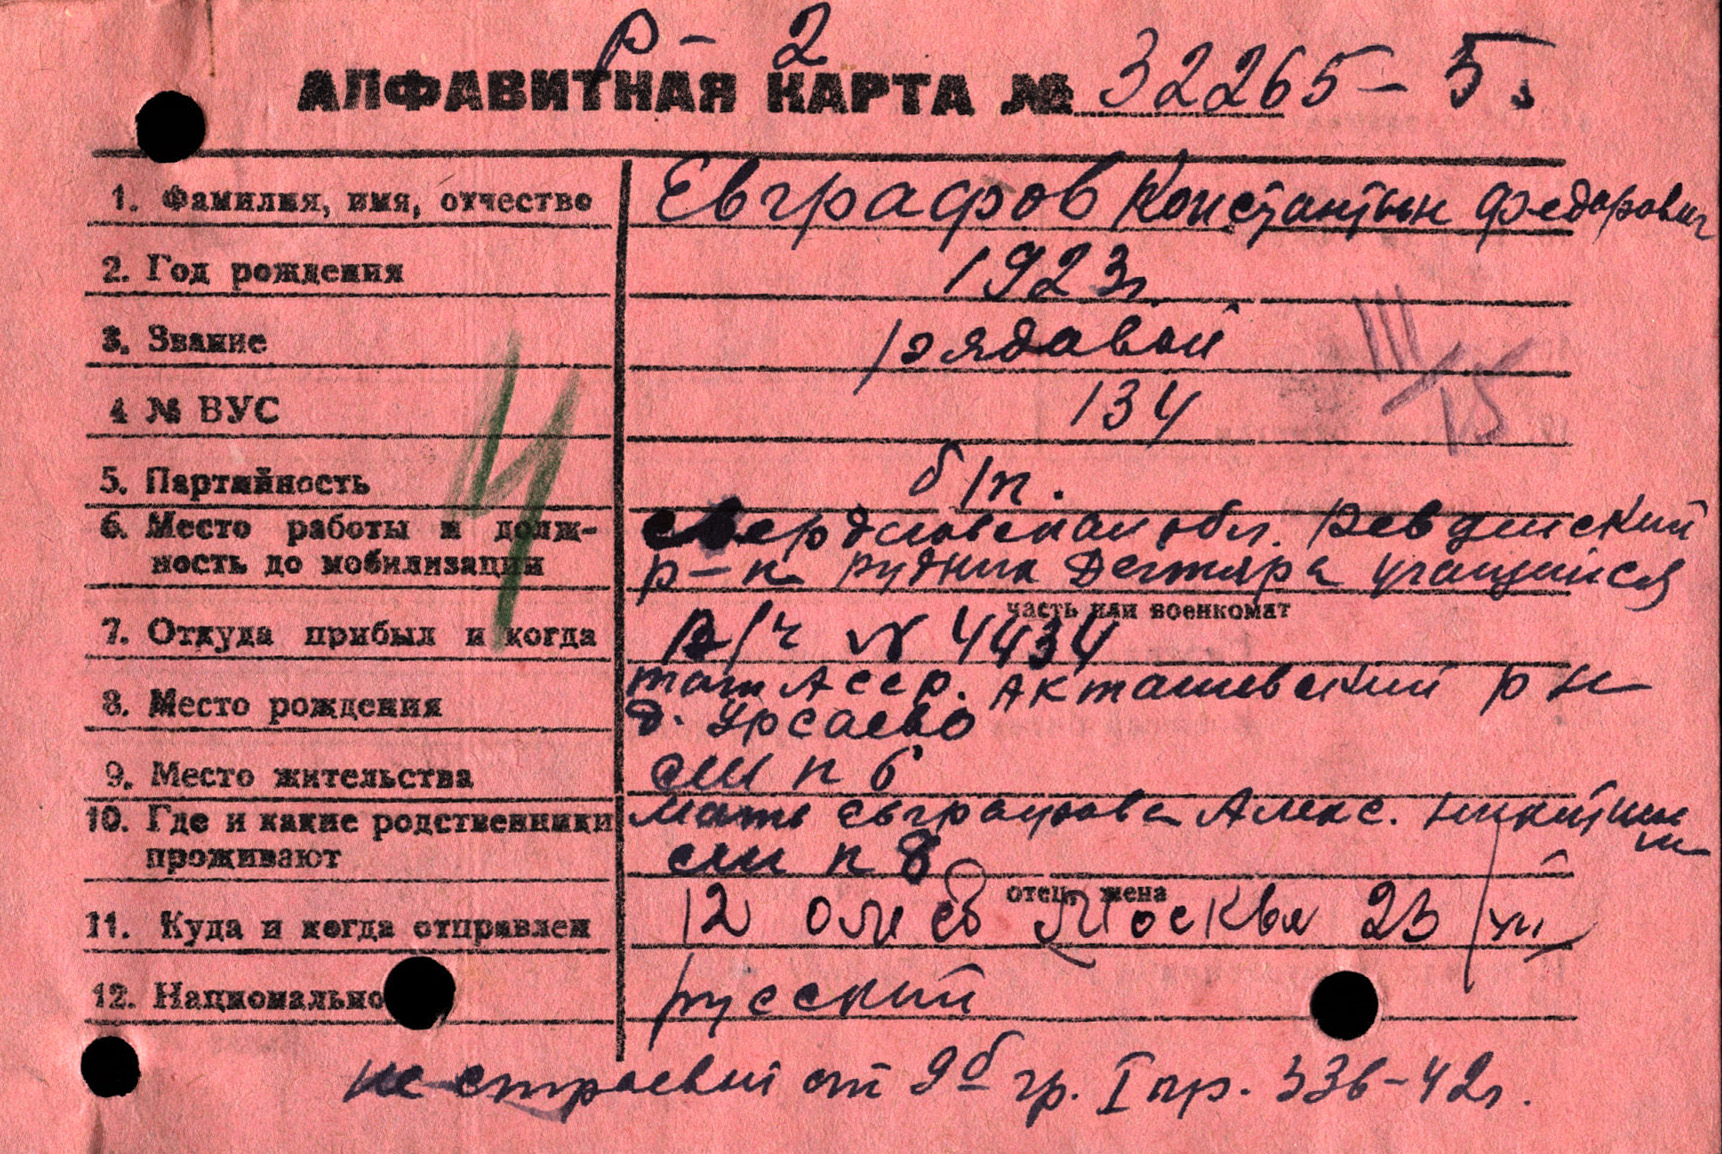 Р-2
АЛФАВИТНАЯ КАРТА № 32265-5
1. Фамилия, имя, отчество Евграфов Константин Федорович
2. Год рождения 1923г
3. Звание рядовой
III/15
4 № ВУС 134
5. Партийность б/п.
6. Место работы и долж-
ность до мобилизации
Свердловская обл. Ревдинский
р-н рудник Дегтярка учащийся
часть или военкомат
7. Откуда прибыл и когда В/ч № 4434
8. Место рождения
тат АССР. Акташевский р н
д. Урсаево
9. Место жительства см п 6
10. Где и какие родственники
проживают
мать Евграфова Алекс. Никитишн
см п 8
отец, жена
11. Куда и когда отправлен 12 Москва 23/VII
12. Национально русский
не строевой от 9б гр. I пр. 336-42г.